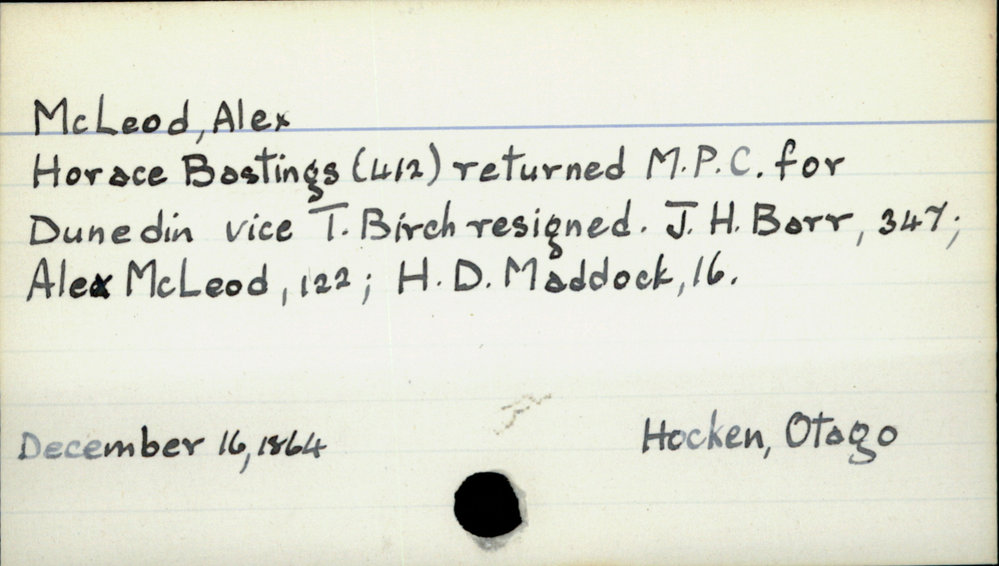 McLeod, Alex
Horace Bastings (412) returned M.P.C. for
Dunedin vice T. Birch resigned. J. H. Barr, 347;
Alex McLeod, 122; H. D. Maddock, 16.
December 16, 1864
Hocken, Otago